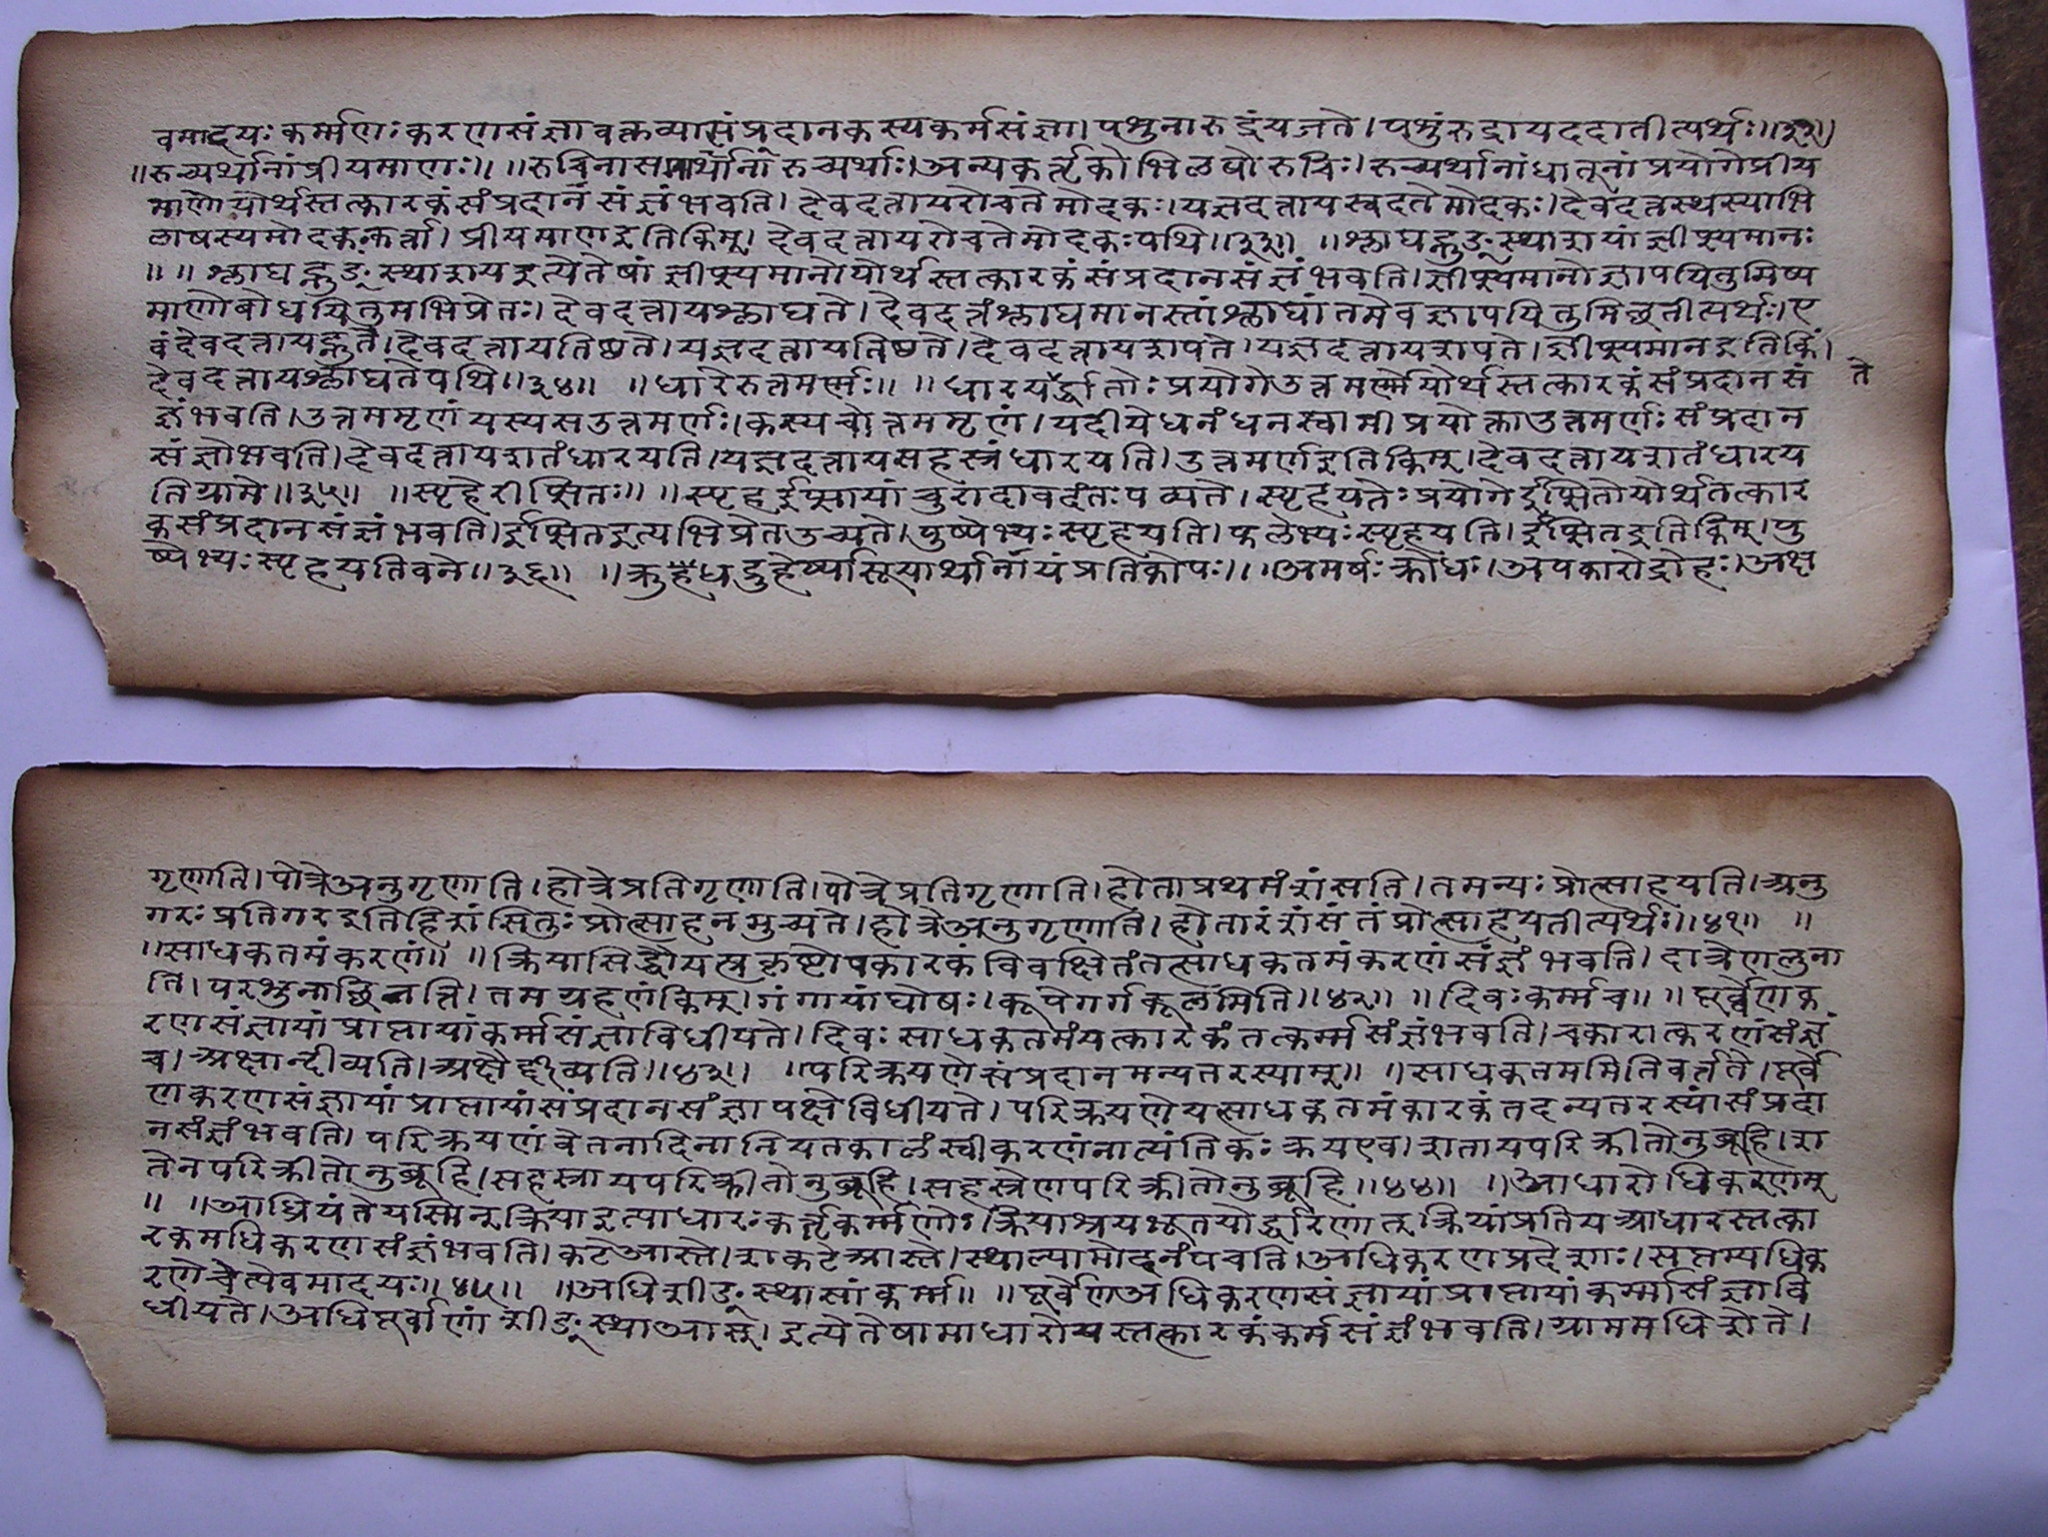 वमादयः कर्म्मणः करणसंज्ञा वक्तव्या संप्रदानकस्य कर्मसंज्ञा। पशुना रुद्रं यजते। पशुं रुद्राय ददातीत्यर्थः॥३२॥
॥रुच्यर्थानां प्रीयमाणः॥ ॥रुचिना समानार्थानां रुच्यर्थाः। अन्यकर्तृको भिलाषो रुचिः। रुच्यर्थानां धातूनां प्रयोगे प्रीय
माणो योर्थस्तत्कारकं संप्रदानसंज्ञं भवति। देवदत्ताय रोचते मोदकः। यज्ञदत्ताय स्वदते मोदकः। देवदत्तस्थस्याभि
लाषस्य मोदकः कर्त्ता। प्रीयमाण इति किम्। देवदत्ताय रोचते मोदकः पथि॥३३॥ ॥श्लाघह्नुङ्स्थाशपां ज्ञीप्स्यमानः
॥ ॥श्लाघह्नुङ्स्थाशप इत्येतेषां ज्ञीप्स्यमानो योर्थस्तत्कारकं संप्रदानसंज्ञं भवति। ज्ञीप्स्यमानो ज्ञापयितुमिष्य
माणो बोधयितुमभिप्रेतः। देवदत्ताय श्लाघते। देवदत्तं श्लाघमानस्तां श्लाघां तमेव ज्ञापयितुमिच्छतीत्यर्थः। ए
वं देवदत्ताय ह्नुते। देवदत्ताय तिष्ठते। यज्ञदत्ताय तिष्ठते। देवदत्ताय शपते। यज्ञदत्ताय शपते। ज्ञीप्स्यमान इति किं।
देवदत्ताय श्लाघते पथि॥३४॥ ॥धारेरुत्तमर्णः॥ ॥धारयर्द्धातोः प्रयोगे उत्तमर्णो योर्थस्तत्कारकं संप्रदानसं ते
ज्ञं भवति। उत्तममृणं यस्य स उत्तमर्णः। कस्य चोत्तममृणं। यदीये धनं धनस्वामी प्रयोक्ता उत्तमर्णः संप्रदान
संज्ञो भवति। देवदत्ताय शतं धारयति। यज्ञदत्ताय सहस्त्रं धारयति। उत्तमर्ण इति किम्। देवदत्ताय शतं धारय
ति ग्रामे॥३५॥ ॥स्पृहेरीप्सितः॥ ॥स्पृह ईप्सायां चुरादावदंतः पठ्यते। स्पृहयतेः प्रयोगे ईप्सितो योर्थतत्कार
कं संप्रदानसंज्ञं भवति। ईप्सित इत्यभिप्रेत उच्यते। पुष्पेभ्यः स्पृहयति। फलेभ्यः स्पृहयति। ईप्सित इति किम्। पु
ष्पेभ्यः स्पृहयति वने॥३६॥ ॥क्रुधद्रुहेर्ष्यासूयार्थानां यं प्रति कोपः॥ ॥अमर्षः क्रोधः। अपकारो द्रोहः। अक्ष
गृणाति। पोत्रे अनुगृणाति। होत्रे प्रतिगृणाति। पोत्रे प्रतिगृणाति। होता प्रथमं शंसति। तमन्यः प्रोत्साहयति। अनु
गरः प्रतिगर इति हि शंसितुः प्रोत्साहनमुच्यते। होत्रे अनुगृणाति। होतारं शंसंतं प्रोत्साहयतीत्यर्थः॥४१॥ ॥
॥साधकतमं करणं॥ ॥क्रियासिद्धौ यत्प्रकृष्टोपकारकं विवक्षितं तत्साधकतमं करणं संज्ञं भवति। दात्रेण लुना
ति। परशुना छिनत्ति। तमग्रहणं किम्। गंगायां घोषः। कूपे गर्गकूलमिति॥४२॥ ॥दिवः कर्म्म च॥ ॥पूर्व्वेण क
रणसंज्ञायां प्राप्तायां कर्म्मसंज्ञा विधीयते। दिवः साधकतमं यत्कारकं तत्कर्म्मसंज्ञं भवति। चकारात्करणं संज्ञं
च। अक्षान्दीव्यति। अक्षैर्द्दीव्यति॥४३॥ ॥परिक्रयणे संप्रदानमन्यतरस्याम्॥ ॥साधकतममिति वर्त्तते। पूर्वे
ण करणसंज्ञायां प्राप्तायां संप्रदानसंज्ञा पक्षे विधीयते। परिक्रयणे यत्साधकतमं कारकं तदन्यतरस्यां संप्रदा
नसंज्ञं भवति। परिक्रयणं वेतनादिना नियतकालं स्वीकरणं नात्यंतिकः क्रय एव। शताय परिक्रीतो नुब्रूहि। श
तेन परिक्रीतो नुब्रूहि। सहस्त्राय परिक्रीतो नुब्रूहि। सहस्त्रेण परिक्रीतो नुब्रूहि॥४४॥ ॥आधारोधिकरणम्
॥ ॥आध्रियंते यस्मिन् क्रिया इत्याधारः कर्तृकर्म्मणोः। क्रियाश्रयभूतयोर्द्धारणात् क्रियां प्रति य आधारस्तत्का
रकमधिकरणसंज्ञं भवति। कटे आस्ते। शकटे आस्ते। स्थाल्यामोदनं पचति। अधिकरणप्रदेशाः। सप्तम्यधिक
रणे चेत्येवमादयः॥४५॥ ॥अधिशीङ्स्थासां कर्म्म॥ ॥पूर्वेण अधिकरणसंज्ञायां प्राप्तायां कर्म्मसंज्ञा वि
धीयते। अधिपूर्वाणां शीङ्स्था आस्। इत्येतेषामाधारो यस्तत्कारकं कर्मसंज्ञं भवति। ग्राममधिशेते।